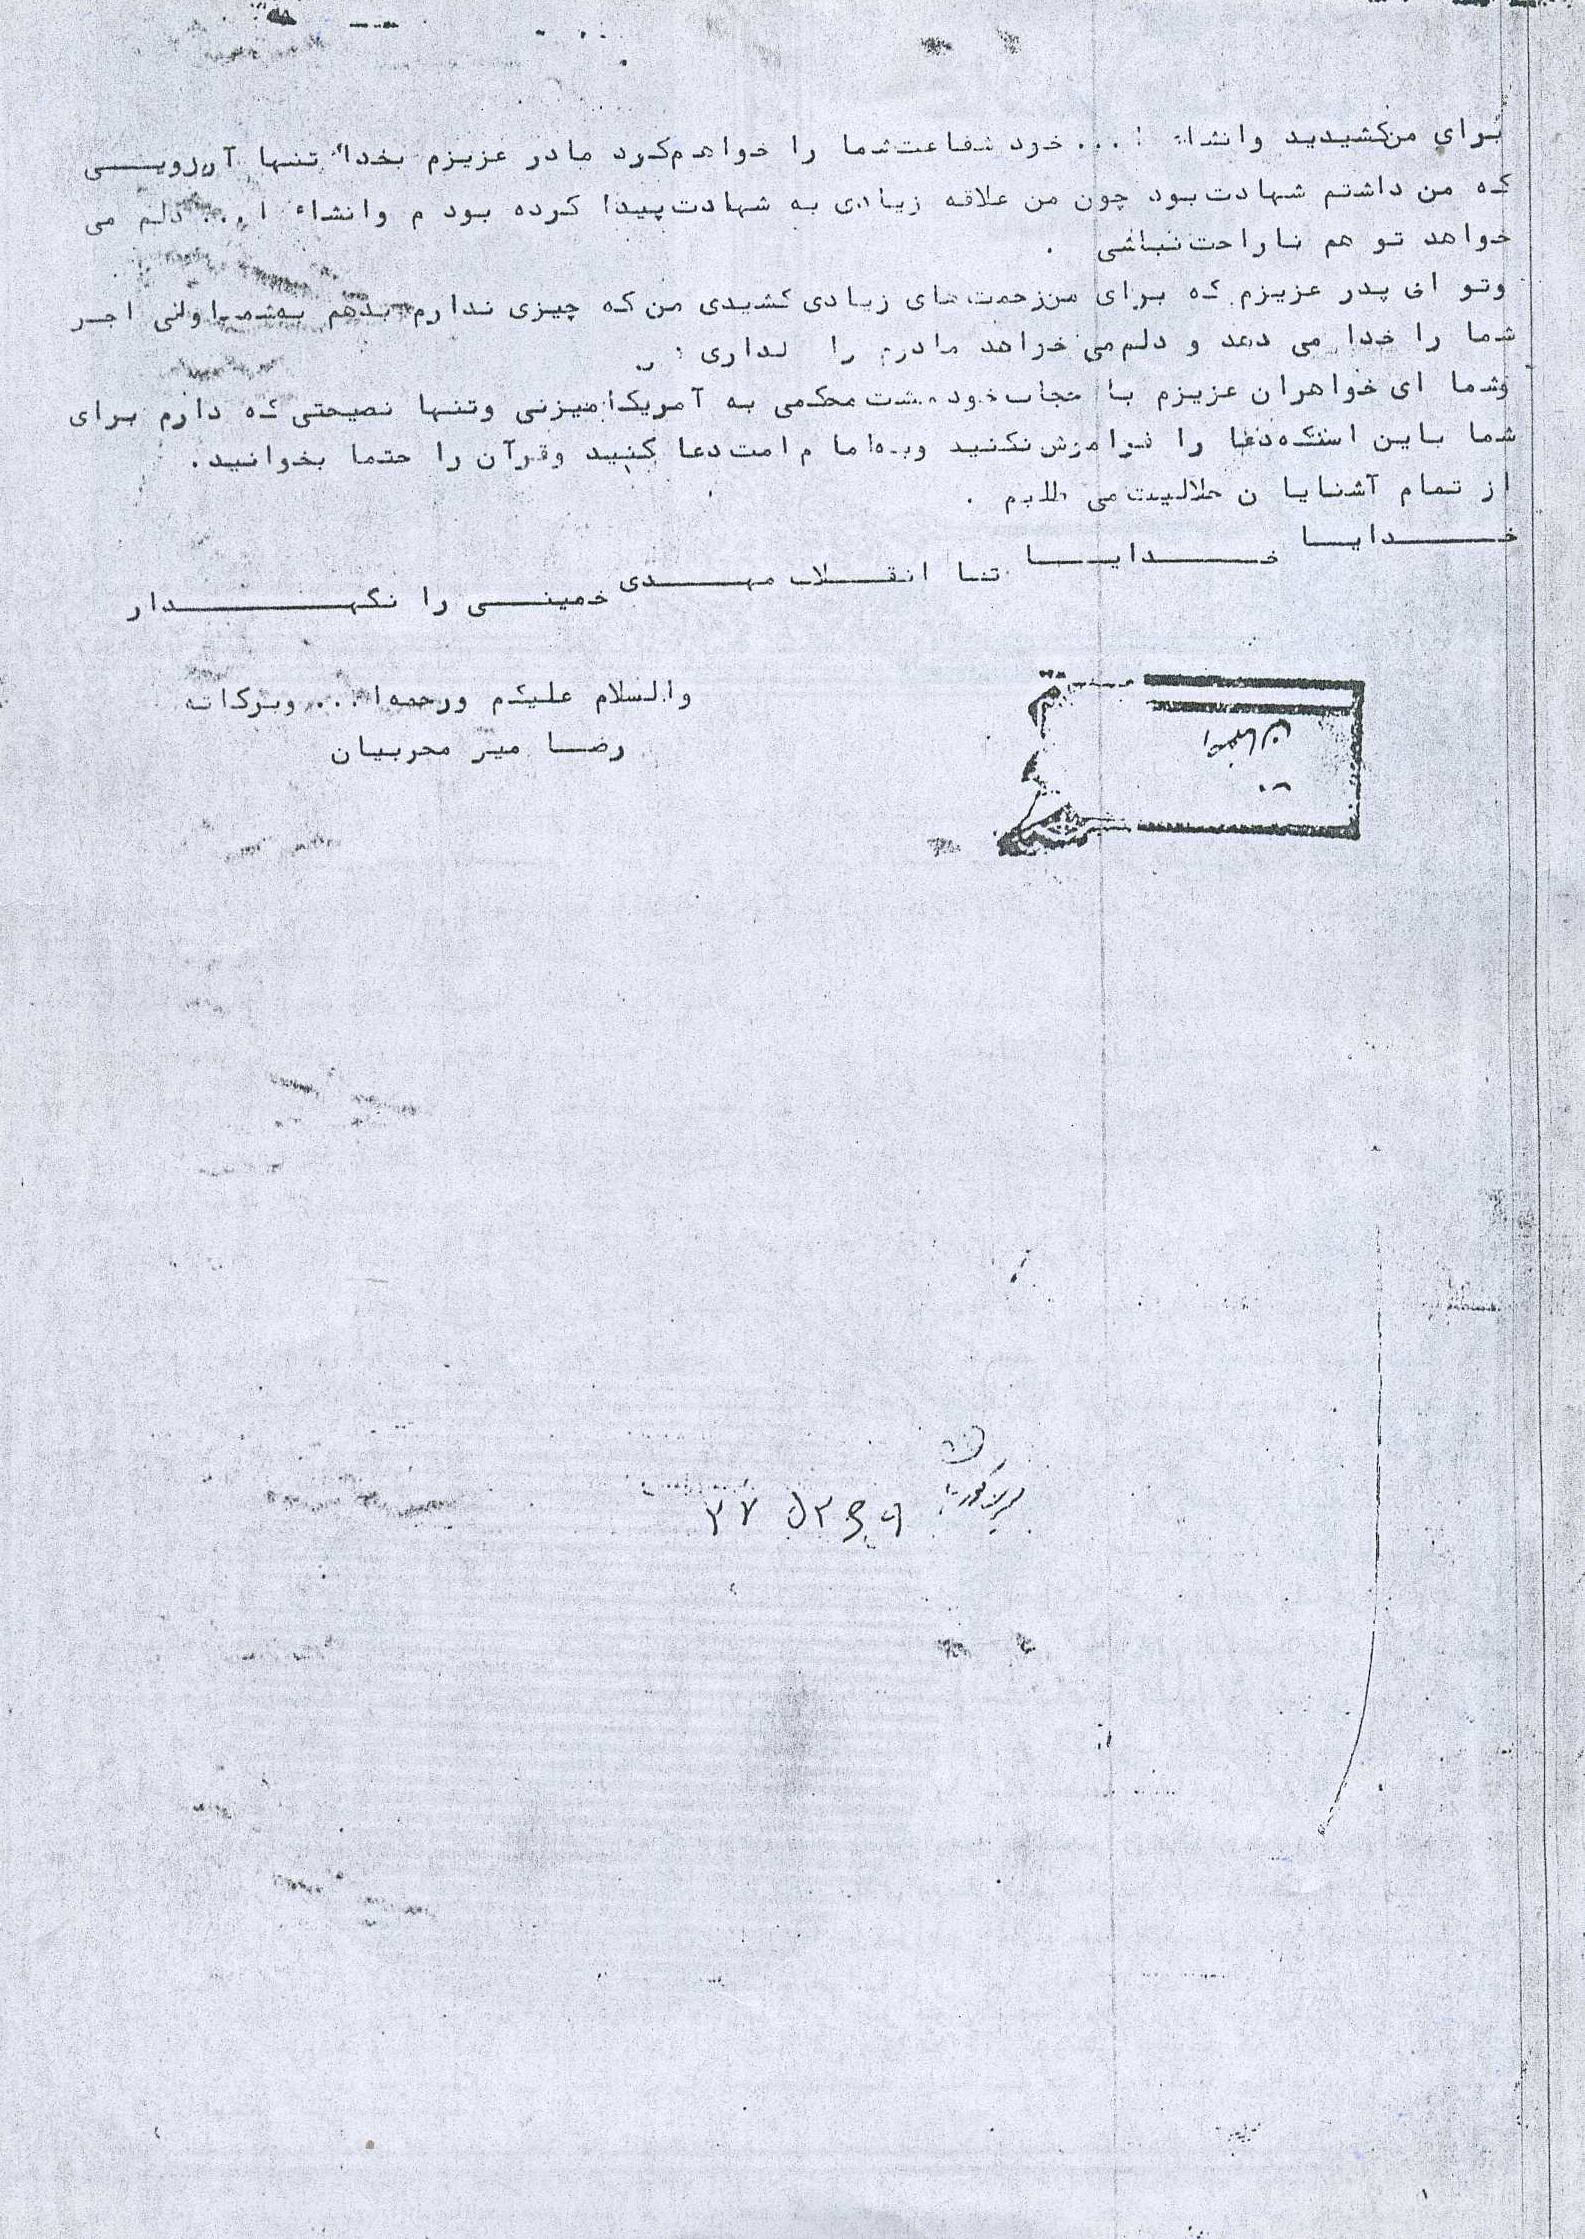 برای من کشیدید وانشاء ا... خود شفاعت شما را خواهم کرد مادر عزیزم بخدا تنها آرزویـــی
که من داشتم شهادت بود چون من علاقه زیادی به شهادت پیدا کرده بودم وانشاء ا... دلم می
خواهد تو هم ناراحت نباشی .
وتو ای پدر عزیزم که برای من زحمت های زیادی کشیدی من که چیزی ندارم بدهم به شما ولی اجر
شما را خدا می دهد و دلم می خواهد مادرم را
وشما ای خواهران عزیزم با حجاب خود مشت محکمی به آمریکا میزنی وتنها نصیحتی که دارم برای
شما باین است که دعا را فراموش نکنید وبه امام امت دعا کنید وقرآن را حتما بخوانید.
از تمام آشنایان حلالیت می طلبم .
خـــدایـــا خـــدایـــا تنا انقـــلاب مهـــدی خمینـــی را نگهـــدار
والسلام علیکم ورحمه ا... وبرکاته
رضـا میر محربیان